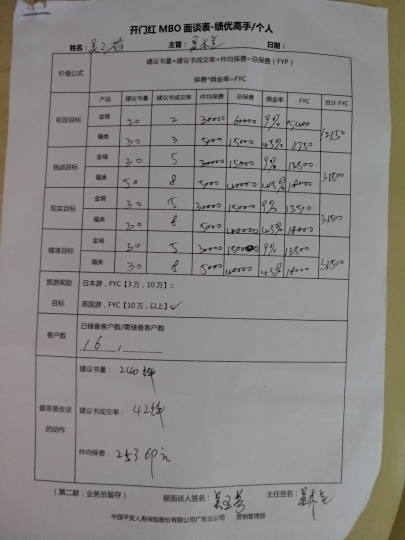 开门红 MBO 面谈表-绩优高手/个人
姓名: 主管: 日期:
价值公式 建议书量*建议书成交率*件均保费=总保费（FYP）
保费*佣金率=FYC
产品 建议书量 建议书成交率 件均保费 总保费 佣金率 FYC 合计 FYC
初定目标 金瑞 20 2 30000 60000 9% 5400 12150
福类 30 3 5000 15000 45%
挑战目标 金瑞 30 5 30000 15000 9% 13500 31500
福类 50 8 5000 40000 45% 18000
现实目标 金瑞 30 5 30000 15000 9% 13500 31500
福类 30 8 5000 40000 45% 18000
精准目标 金瑞 30 5 30000 9% 13500 31500
福类 30 8 5000 40000 45% 18000
旅游奖励 日本游，FYC【3万，10万】□
目标 英国游，FYC【10万，以上】✓
客户数 已储备客户数/需储备客户数
16 ,
建议书量： 240件
最需要改进 建议书成交率： 42件
的动作
件均保费： 25360元
（第二联：业务员留存） 被面谈人签名： 主任签名：
中国平安人寿保险股份有限公司广东分公司 营销管理部